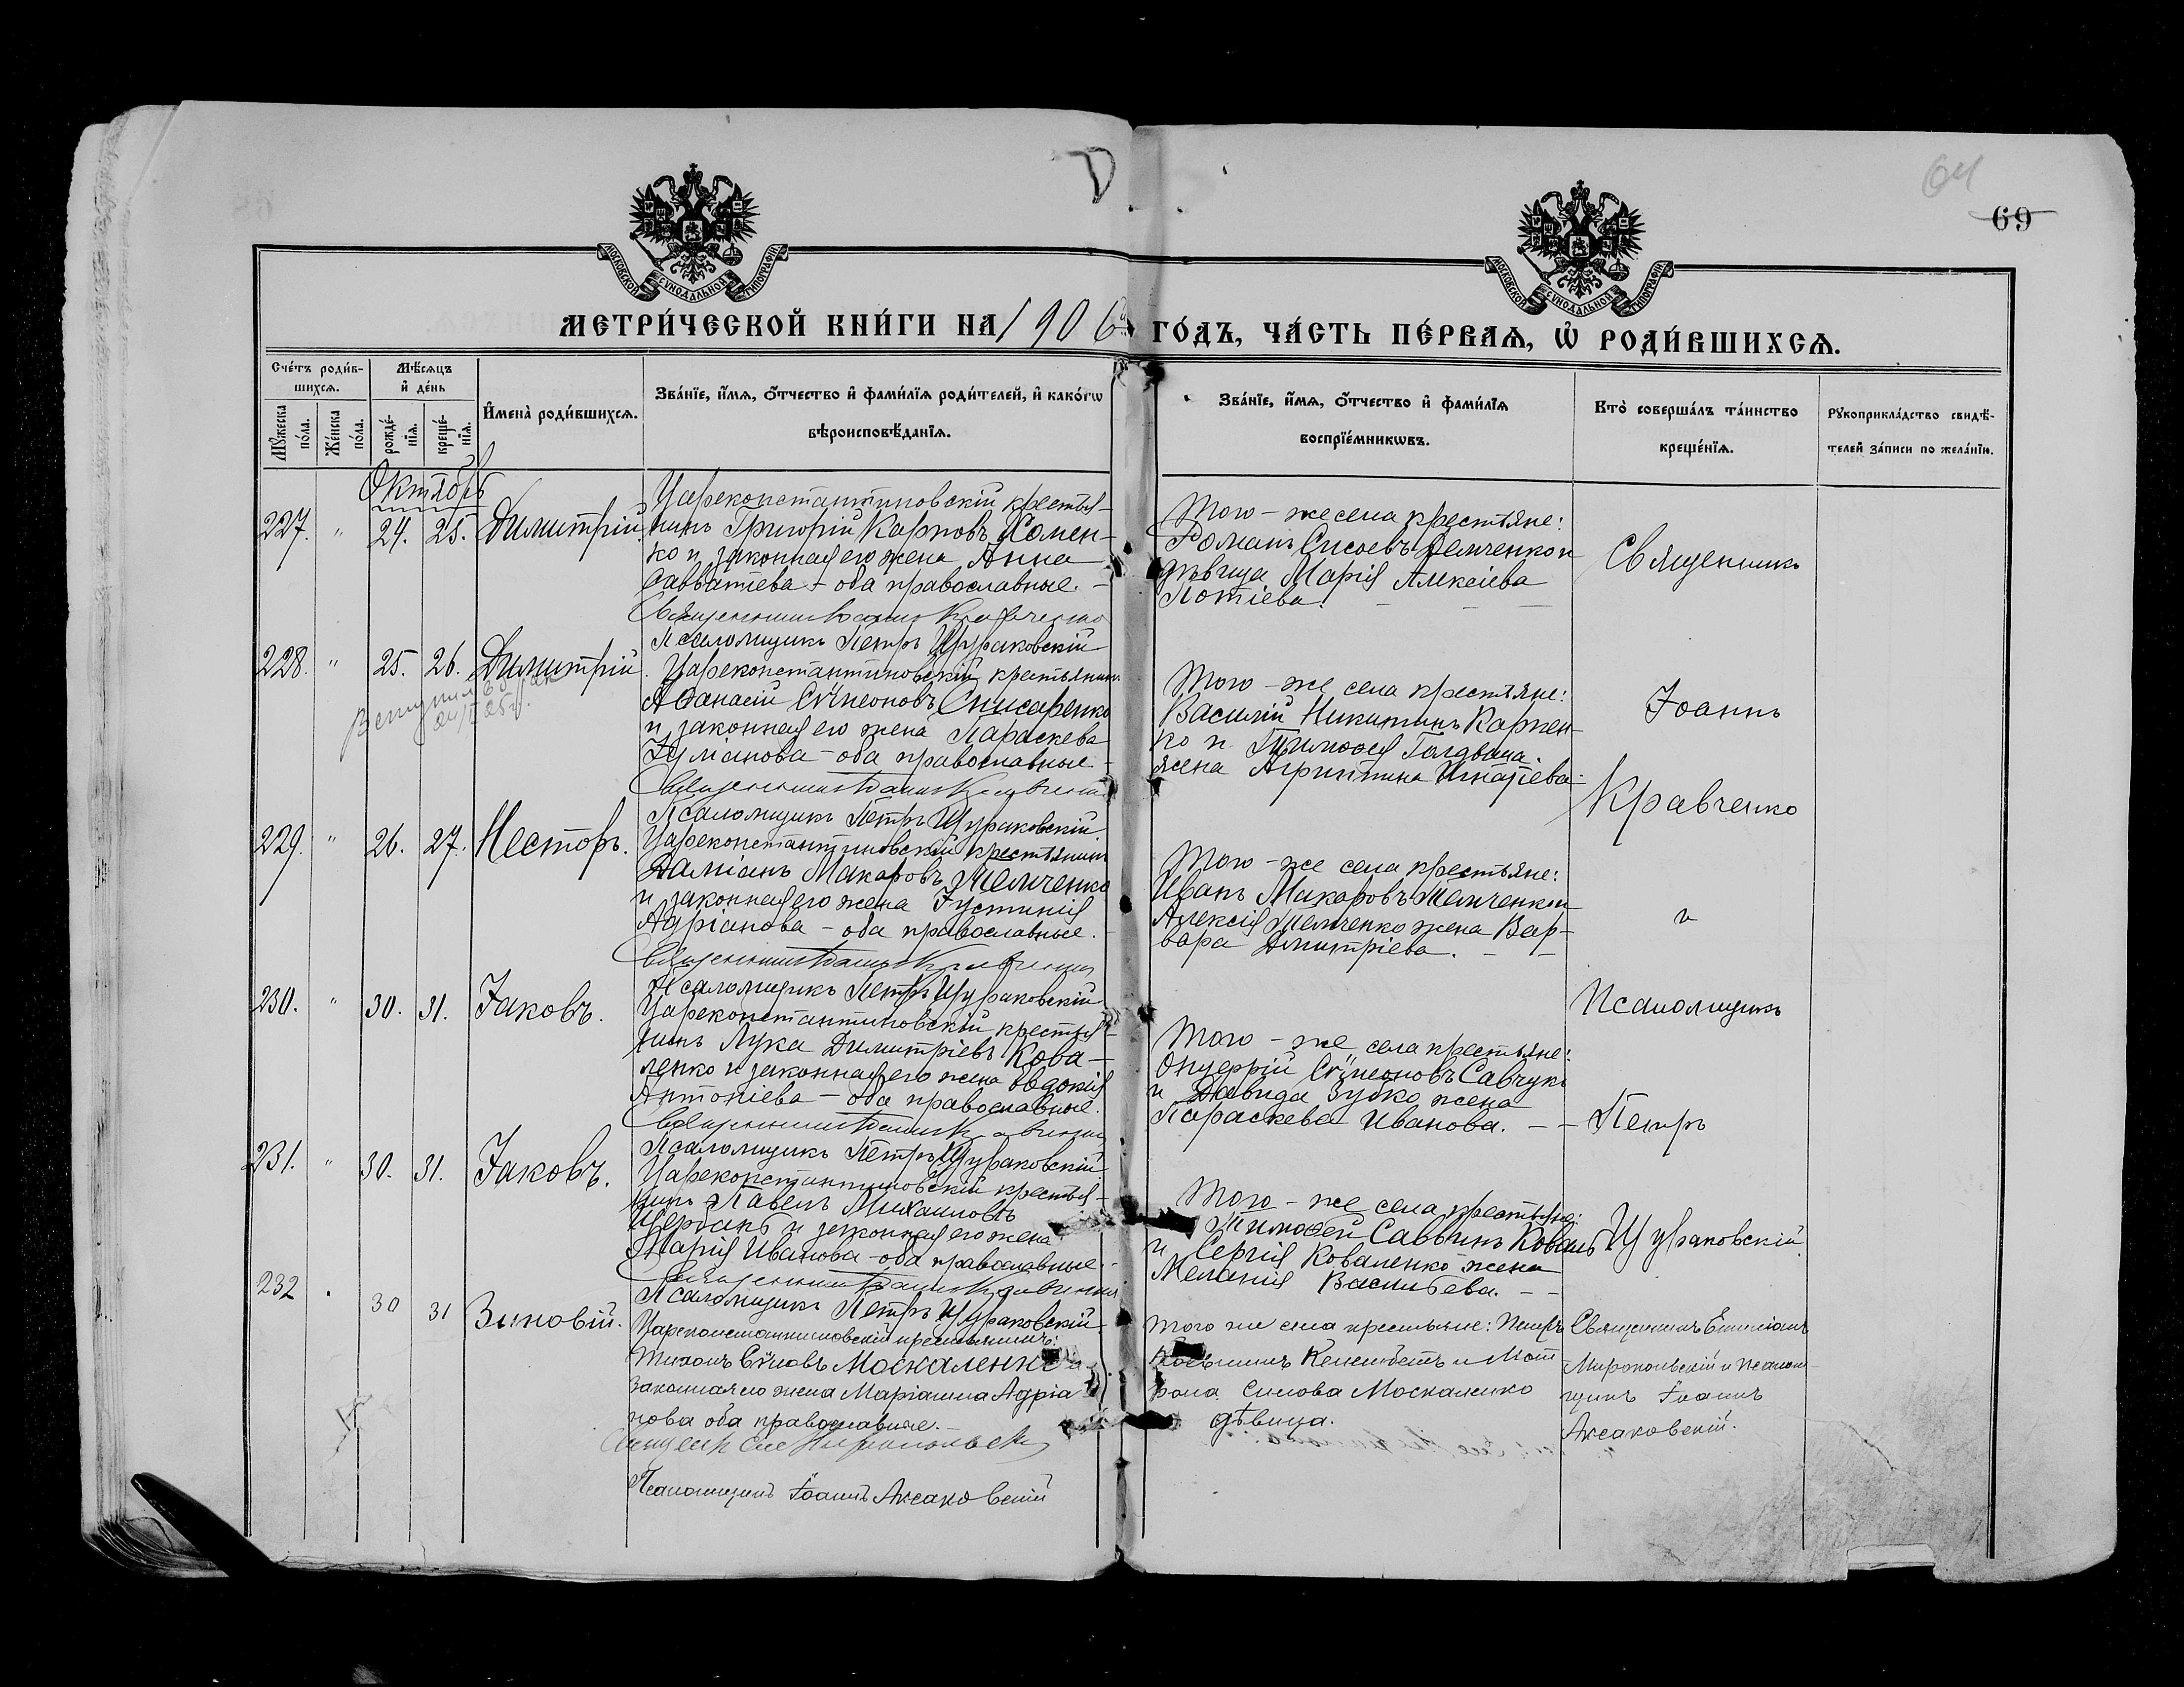 64
69
МОСКОВСКОЙ СѴНОДАЛЬНОЙ ТИПОГРАФІИ
МОСКОВСКОЙ СѴНОДАЛЬНОЙ ТИПОГРАФІИ
МЕТРИ́ЧЕСКОЙ КНИ́ГИ НА 1906й ГО́ДЪ, ЧА́СТЬ ПЕ́РВАѦ, Ѡ҆ РОДИ́ВШИХСѦ.
Сче́тъ роди́в-
шихсѧ.
Мꙋ́жеска по́ла.
Же́нска по́ла.
Мѣ́сѧцъ и҆ де́нь
рожде́-
нїѧ.
креще́-
нїѧ.
И҆мена̀ роди́вшихсѧ.
Зва́нїе, и҆́мѧ, ѻ҆́тчество и҆ фами́лїѧ роди́телей, и҆ како́гѡ
вѣроисповѣ́данїѧ.
Зва́нїе, и҆́мѧ, ѻ҆́тчество и҆ фами́лїѧ
воспрїе́мникѡвъ.
Кто̀ соверша́лъ та́инство
креще́нїѧ.
Рꙋкоприкла́дство свидѣ́-
телей за́писи по жела́нїю.
Октябрь
227. " 24. 25. Димитрій.
Цареконстантиновскій крестья-
нинъ Григорій Карповъ Хомен-
ко и законная его жена Анна
Савватіева – оба православные. –
Священникъ Іоаннъ Кравченко
Псаломщикъ Петръ Щураковскій
Того – же села крестьяне:
Романъ Сисоевъ Демченко и
дѣвица Марія Алексіева
Потіева.
Священникъ
228. " 25. 26. Димитрій.
Цареконстантиновскій крестьянинъ
Аѳанасій Сѵмеоновъ Снисаренко
и законная его жена Параскева
Іуліанова – оба православные –
Священникъ Іоаннъ Кравченко
Псаломщикъ Петръ Щураковскій.
Того – же села крестьяне:
Василій Никитинъ Карпен-
ко и Тимоѳея
жена Агриппина Игнатіева.
Іоаннъ
Кравченко
229. " 26. 27. Несторъ.
Цареконстантиновскій крестьянинъ
Даміанъ Макаровъ Шемченко
и законная его жена Іустинія
Адріанова – оба православные.
Священникъ Іоаннъ Кравченко
Псаломщикъ Петръ Щураковскій
Того – же села крестьяне:
Иванъ Макаровъ Шемченко и
Алексія Шемченко жена Вар-
вара Дмитріева. – –
и
230. " 30. 31. Іаковъ.
Цареконстантиновскій крестья-
нинъ Лука Димитріевъ Кова-
ленко и законная его жена Евдокія
Антоніева – оба православные.
Священникъ Іоаннъ Кравченко
Псаломщикъ Петръ Щураковскій
Того – же села крестьяне:
Онуфрій Сѵмеоновъ Савчукъ
и Давида Зубко жена
Параскева Иванова. – –
Псаломщикъ
Петръ
231. " 30. 31. Іаковъ.
Цареконстантиновскій крестья-
нинъ Павелъ Михаиловъ
Щербакъ и законная его жена
Марія Иванова – оба православные. –
Священникъ Іоаннъ Кравченко
Псаломщикъ Петръ Щураковскій.
Того – же села крестьяне:
Тимоѳей Саввинъ Коваль
и Сергія Коваленко жена
Меланія Васильева. – –
Щураковскій.
232 30 31 Зиновій.
Цареконстантиновскій крестьянинъ:
Тихонъ Моcкаленко и
законная его жена Маріамна Адріа
нова оба православные. –
Псаломщикъ Іоаннъ Аксаковскій
Того же села крестьяне: Петръ
и Мат
рона Москаленко
дѣвица.
Священникъ
и псалом-
щикъ Іоаннъ
Аксаковскій.